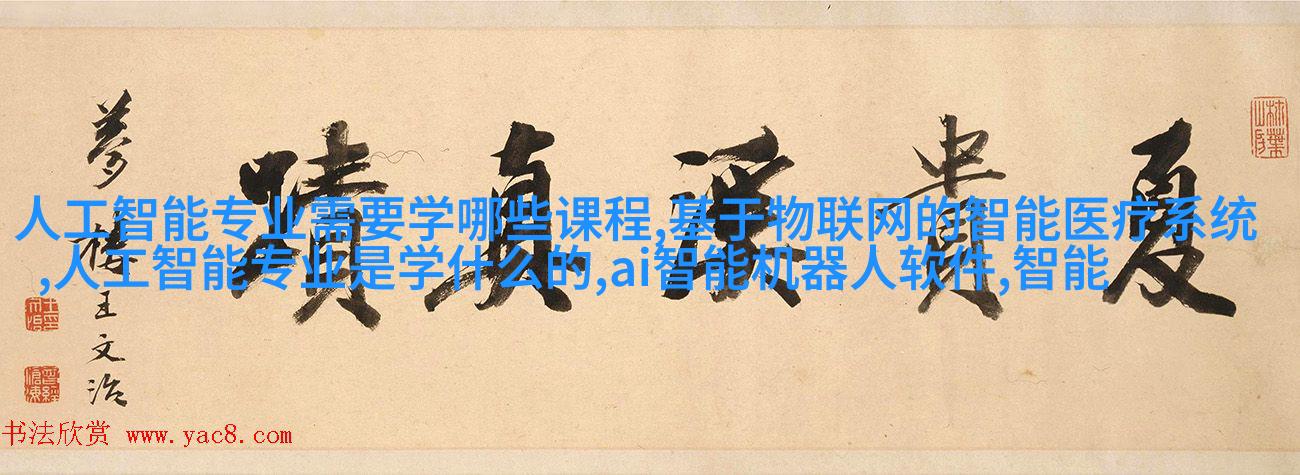 夏貴溪真蹟
夢樓王文治
人工智能专业需要学哪些课程,基于物联网的智能医疗系统
,人工智能专业是学什么的,ai智能机器人软件,智能
曾經滄海
书法欣赏 www.yac8.com